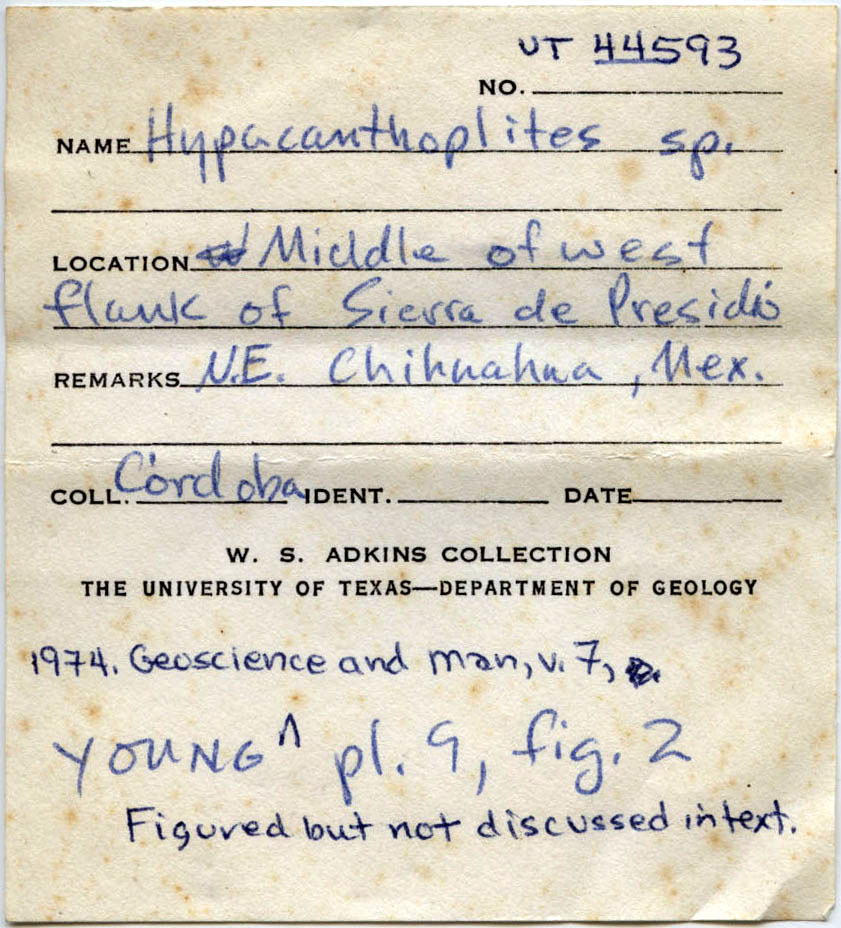 UT 44593
NO.
NAME Hypacanthoplites sp.
LOCATION Middle of west
flank of Sierra de Presidio
REMARKS N.E. Chihuahua, Mex.
COLL. Córdoba IDENT. DATE
W. S. ADKINS COLLECTION
THE UNIVERSITY OF TEXAS—DEPARTMENT OF GEOLOGY
1974. Geoscience and man, v. 7,
YOUNG ^ pl. 9, fig. 2
Figured but not discussed in text.